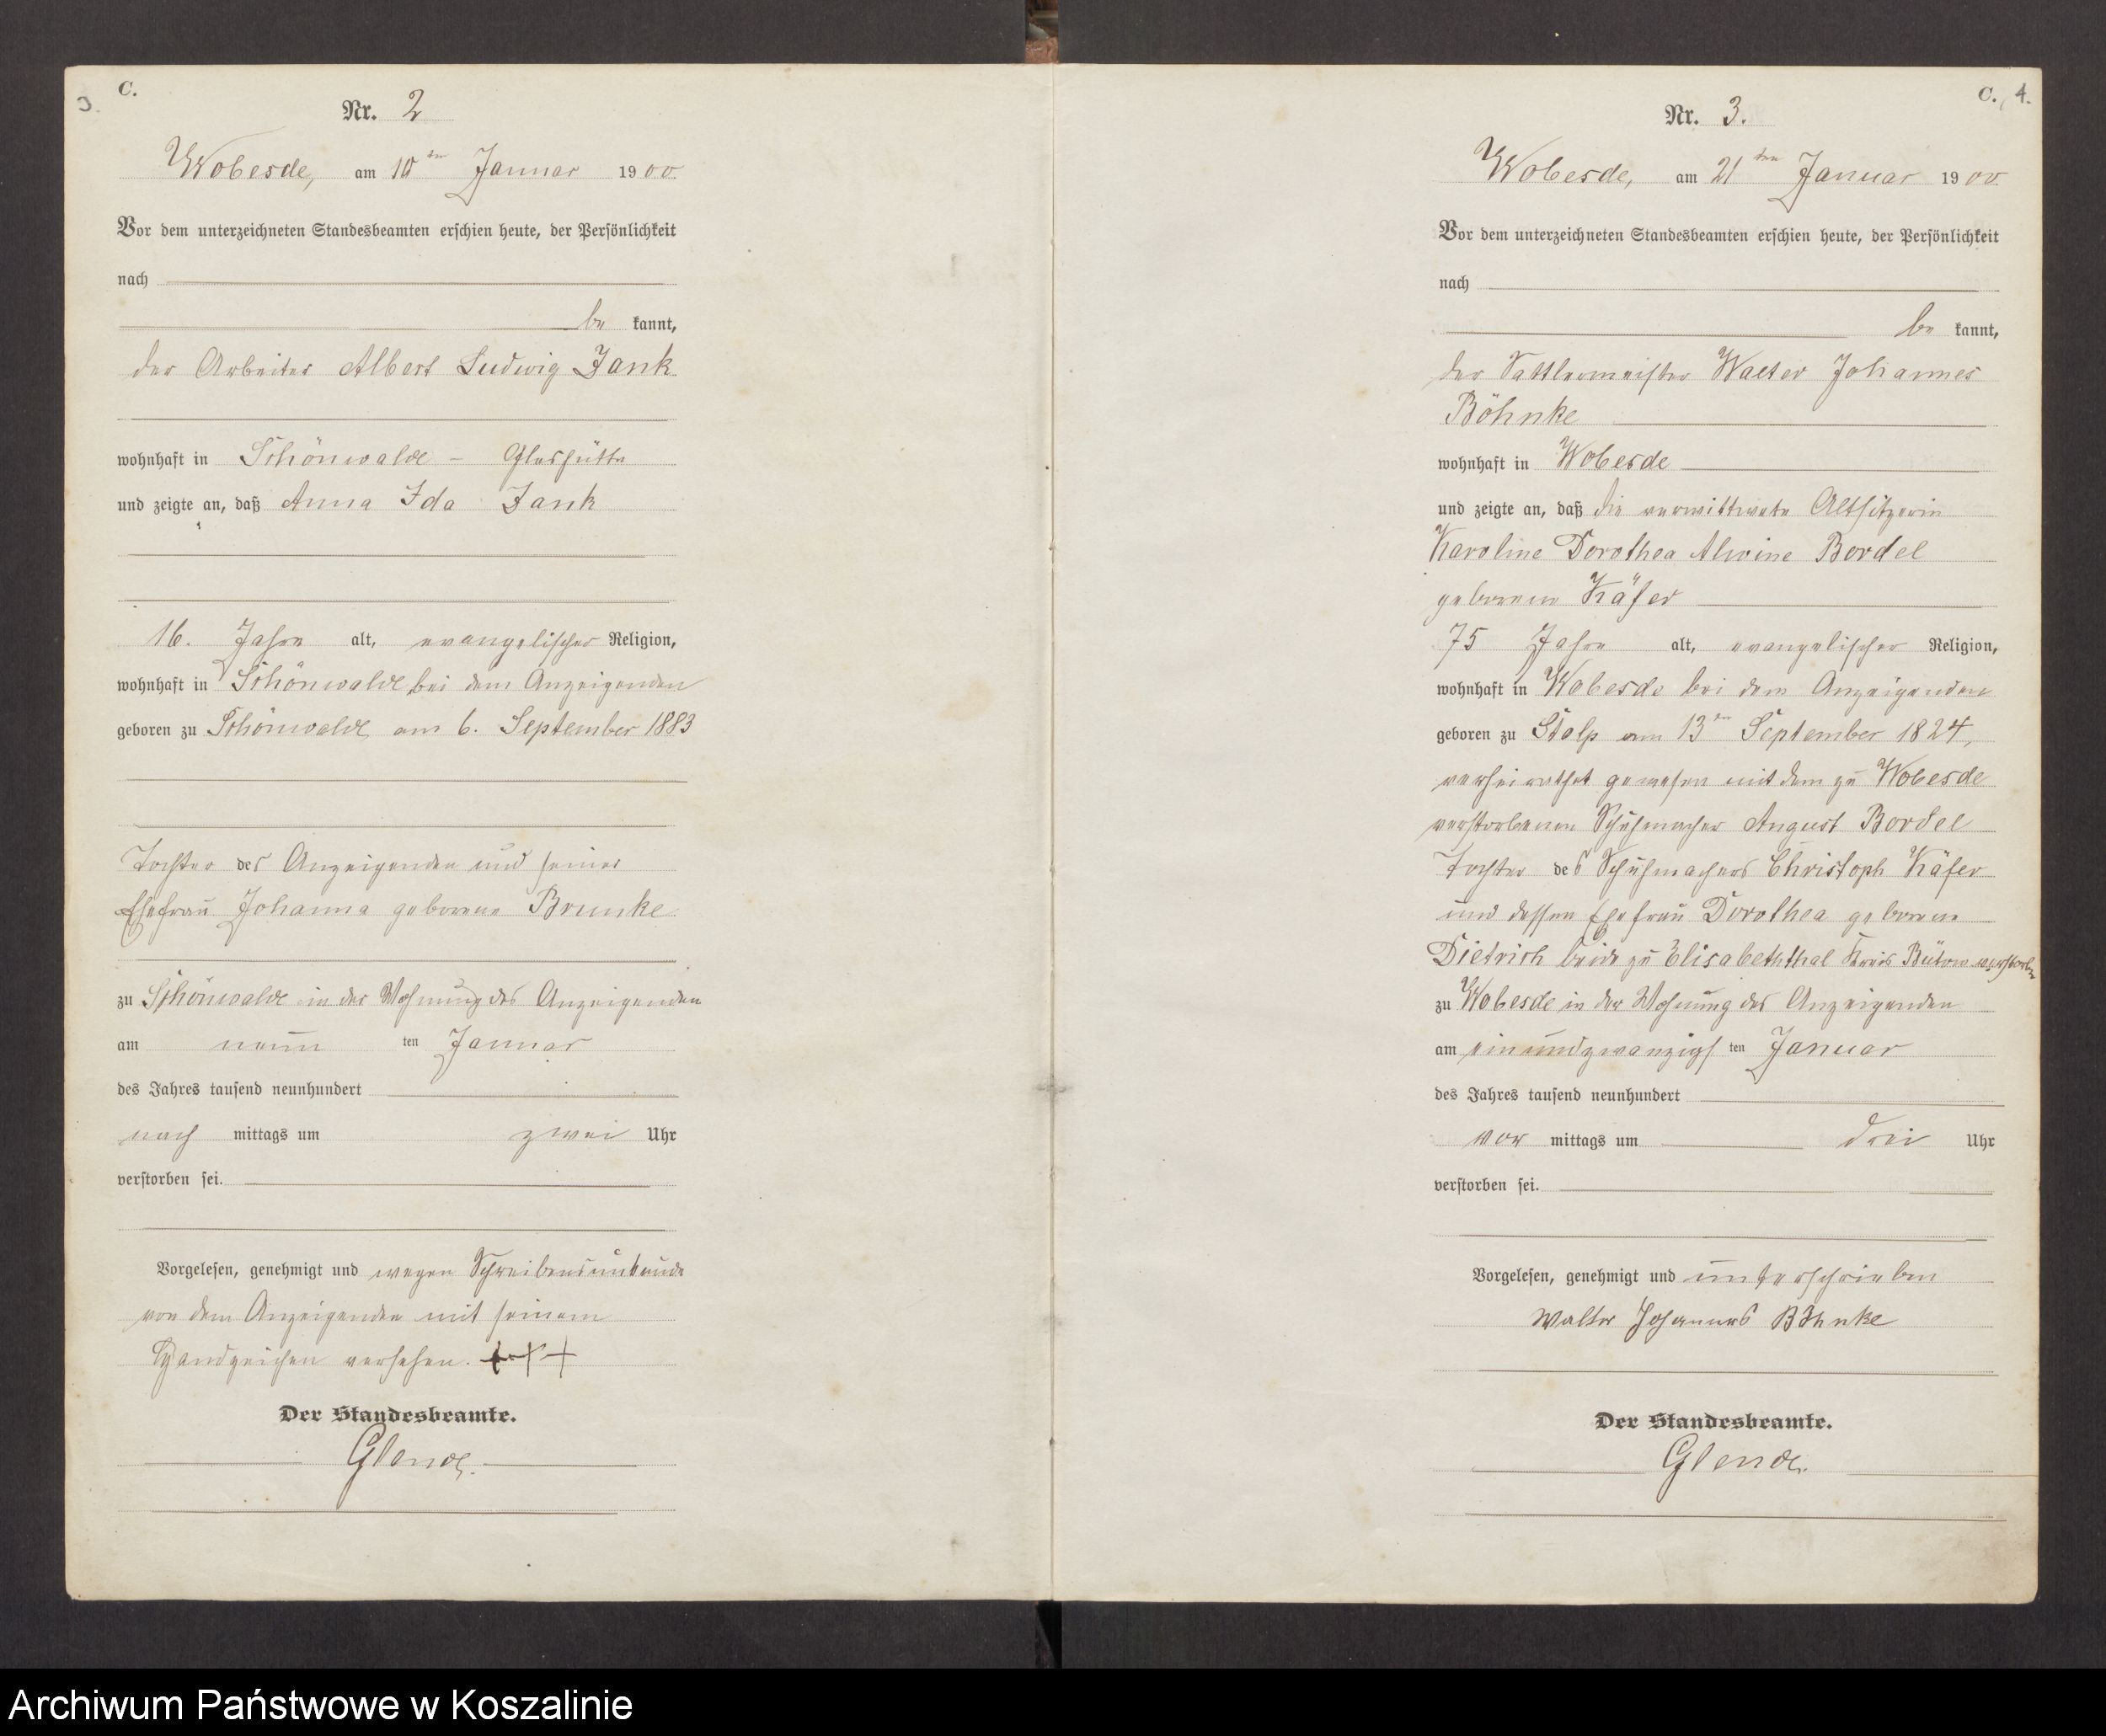 3.
C.
Nr. 2
Wobesde, am 10ten Januar 1900.
Vor dem unterzeichneten Standesbeamten erschien heute, der Persönlichkeit
nach
be kannt,
der Arbeiter Albert Ludwig Jank
wohnhaft in Schönwalde - Glashütte
und zeigte an, daß Anna Ida Jank
16. Jahre alt, evangelischer Religion,
wohnhaft in Schönwalde bei dem Anzeigenden
geboren zu Schönwalde am 6. September 1883
Tochter des Anzeigenden und seiner
Ehefrau Johanna geborene Brunke
zu Schönwalde in der Wohnung des Anzeigenden
am neun ten Januar
des Jahres tausend neunhundert
nach mittags um zwei Uhr
verstorben sei.
Vorgelesen, genehmigt und wegen Schreibensunkunde
von dem Anzeigenden mit seinem
Handzeichen versehen. +++
Der Standesbeamte.
Glende.
C. 4.
Nr. 3.
Wobesde, am 21ten Januar 1900.
Vor dem unterzeichneten Standesbeamten erschien heute, der Persönlichkeit
nach
be kannt,
der Sattlermeister Walter Johannes
Böhnke
wohnhaft in Wobesde
und zeigte an, daß die verwittwete Altsitzerin
Karoline Dorothea Alwine Bordel
geborene Käfer
75 Jahre alt, evangelischer Religion,
wohnhaft in Wobesde bei dem Anzeigenden
geboren zu Stolp am 13ten September 1824,
verheirathet gewesen mit dem zu Wobesde
verstorbenen Schuhmacher August Bordel
Tochter des Schuhmachers Christoph Käfer
und dessen Ehefrau Dorothea geborene
Dietrich beide zu Elisabeththal Kreis Bütow verstorben
zu Wobesde in der Wohnung des Anzeigenden
am einundzwanzigs ten Januar
des Jahres tausend neunhundert
vor mittags um drei Uhr
verstorben sei.
Vorgelesen, genehmigt und unterschrieben
Walter Johannes Böhnke
Der Standesbeamte.
Glende.
Archiwum Państwowe w Koszalinie